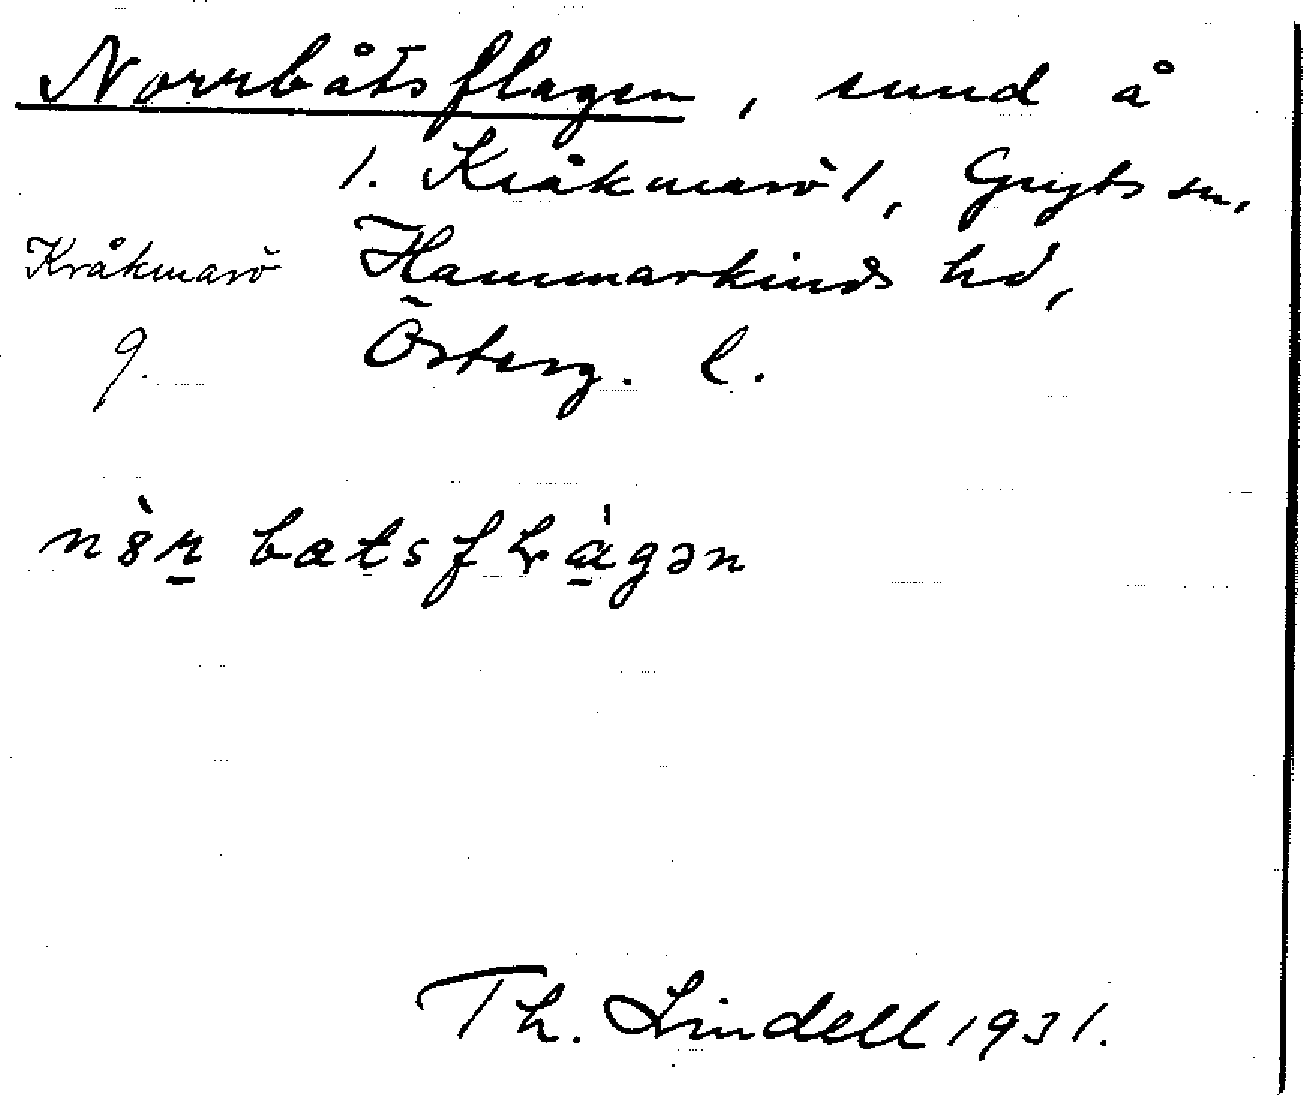 Norrbåtsflagen, sund å
1. Kråkmarö 1, Gryts sn,
Kråkmarö Hammarkinds hd,
9. Österg. l.
nòr batsflágən
Th. Lindell 1931.